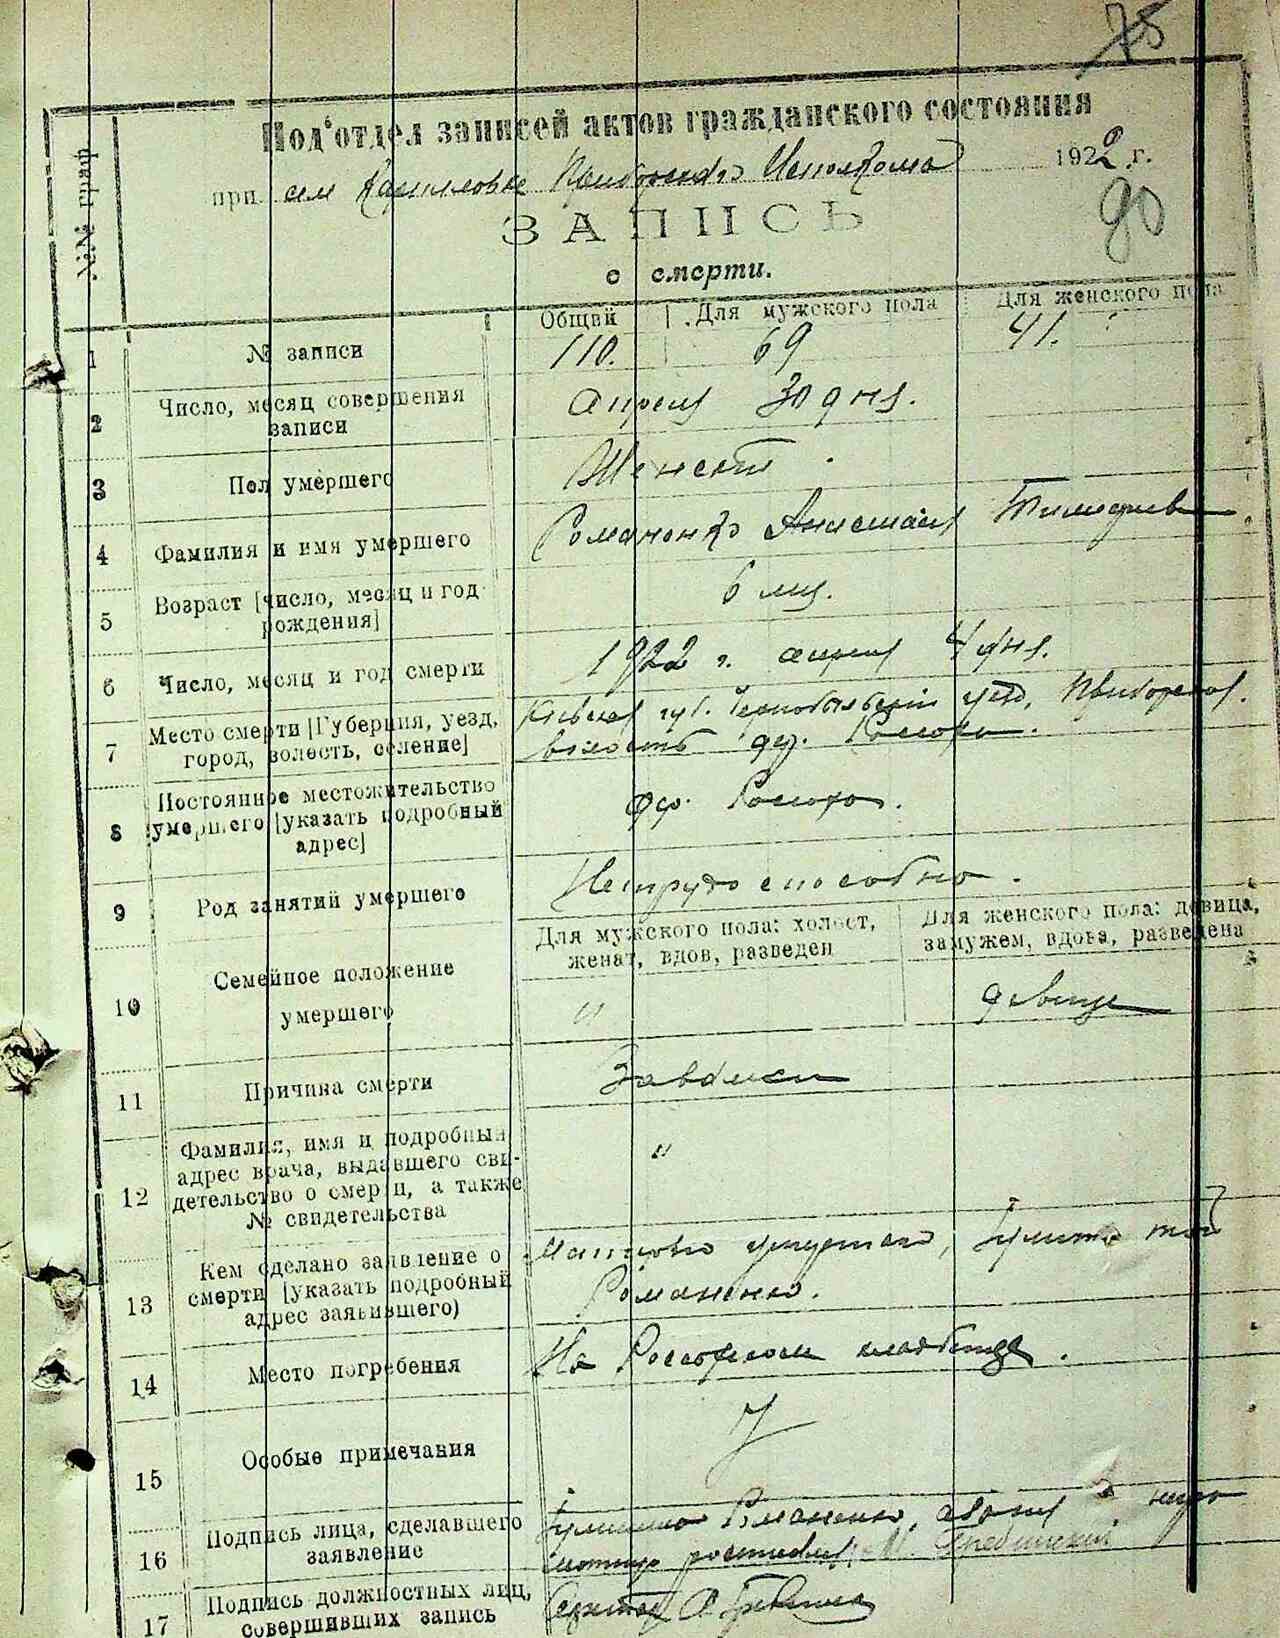 75
Под'отдел записей актов гражданского состояния
при сел Карпиловке Приборского Исполкома 1922 г.
90
ЗАПИСЬ
о смерти.
№№ граф
Общий Для мужского пола Для женского пола
1 № записи 110. 69 41.
2 Число, месяц совершения записи Апреля 30 дня.
3 Пол умершего Женский
4 Фамилия и имя умершего Романенко Анастасия Тимофеев
5 Возраст [число, месяц и год рождения] 6 мец.
6 Число, месяц и год смерти 1922 г. апреля 4 дня.
7 Место смерти [Губерния, уезд, город, волость, селение] Киевская губ. Чернобыльский уезд, Приборская.
волость дер. Россоха.
8 Постоянное местожительство умершего [указать подробный адрес] дер. Россоха.
9 Род занятий умершего Нетрудоспособно.
Для мужского пола: холост, женат, вдов, разведен
Для женского пола: девица, замужем, вдова, разведена
10 Семейное положение умершего " девица
11 Причина смерти
12 Фамилия, имя и подробный адрес врача, выдавшего свидетельство о смерти, а также № свидетельства "
13 Кем сделано заявление о смерти [указать подробный адрес заявившего)
Романенко.
14 Место погребения На Россохском кладбище.
15 Особые примечания
16 Подпись лица, сделавшего заявление Романенко,
17 Подпись должностных лиц, совершивших запись